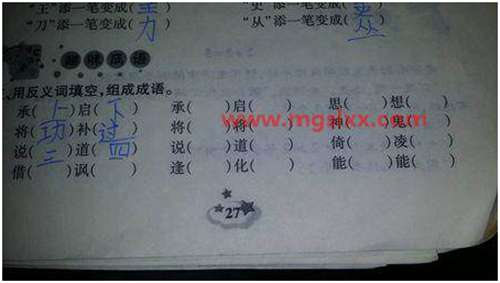 "王"添一笔变成( ) "史"添一笔变成( )
"刀"添一笔变成(力) "从"添一笔变成(丛)
成语
、用反义词填空,组成成语。
承(上)启(下) 承( )启( ) 思( )想( )
将(功)补(过) 将( )将( ) 神( )鬼( )
说(三)道(四) 说( )道( ) 倚( )凌( )
借( )讽( ) 逢( )化( ) 能( )能( )
27